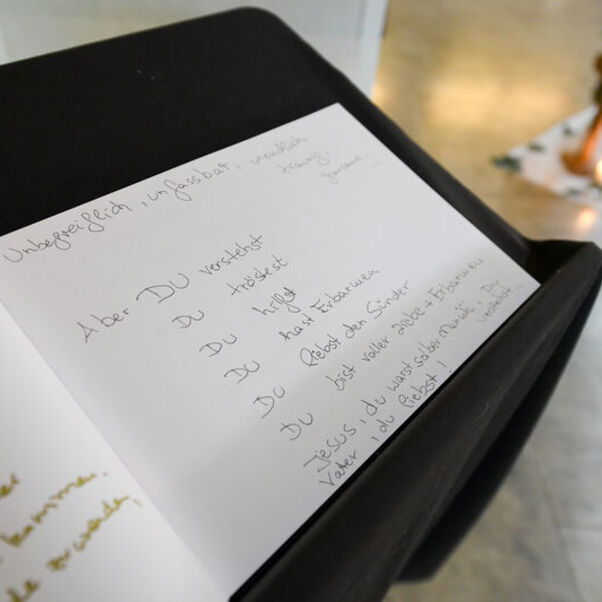 Unbegreiflich, unfassbar, unendlich
traurig,
grausam ...
Aber DU verstehst
Du tröstest
DU hilfst
DU hast Erbarmen
DU liebst den Sünder
DU bist voller Liebe + Erbarmen
Jesus, du warst selber Mensch, Du
verstehst...
Vater, du liebst!
kommen.